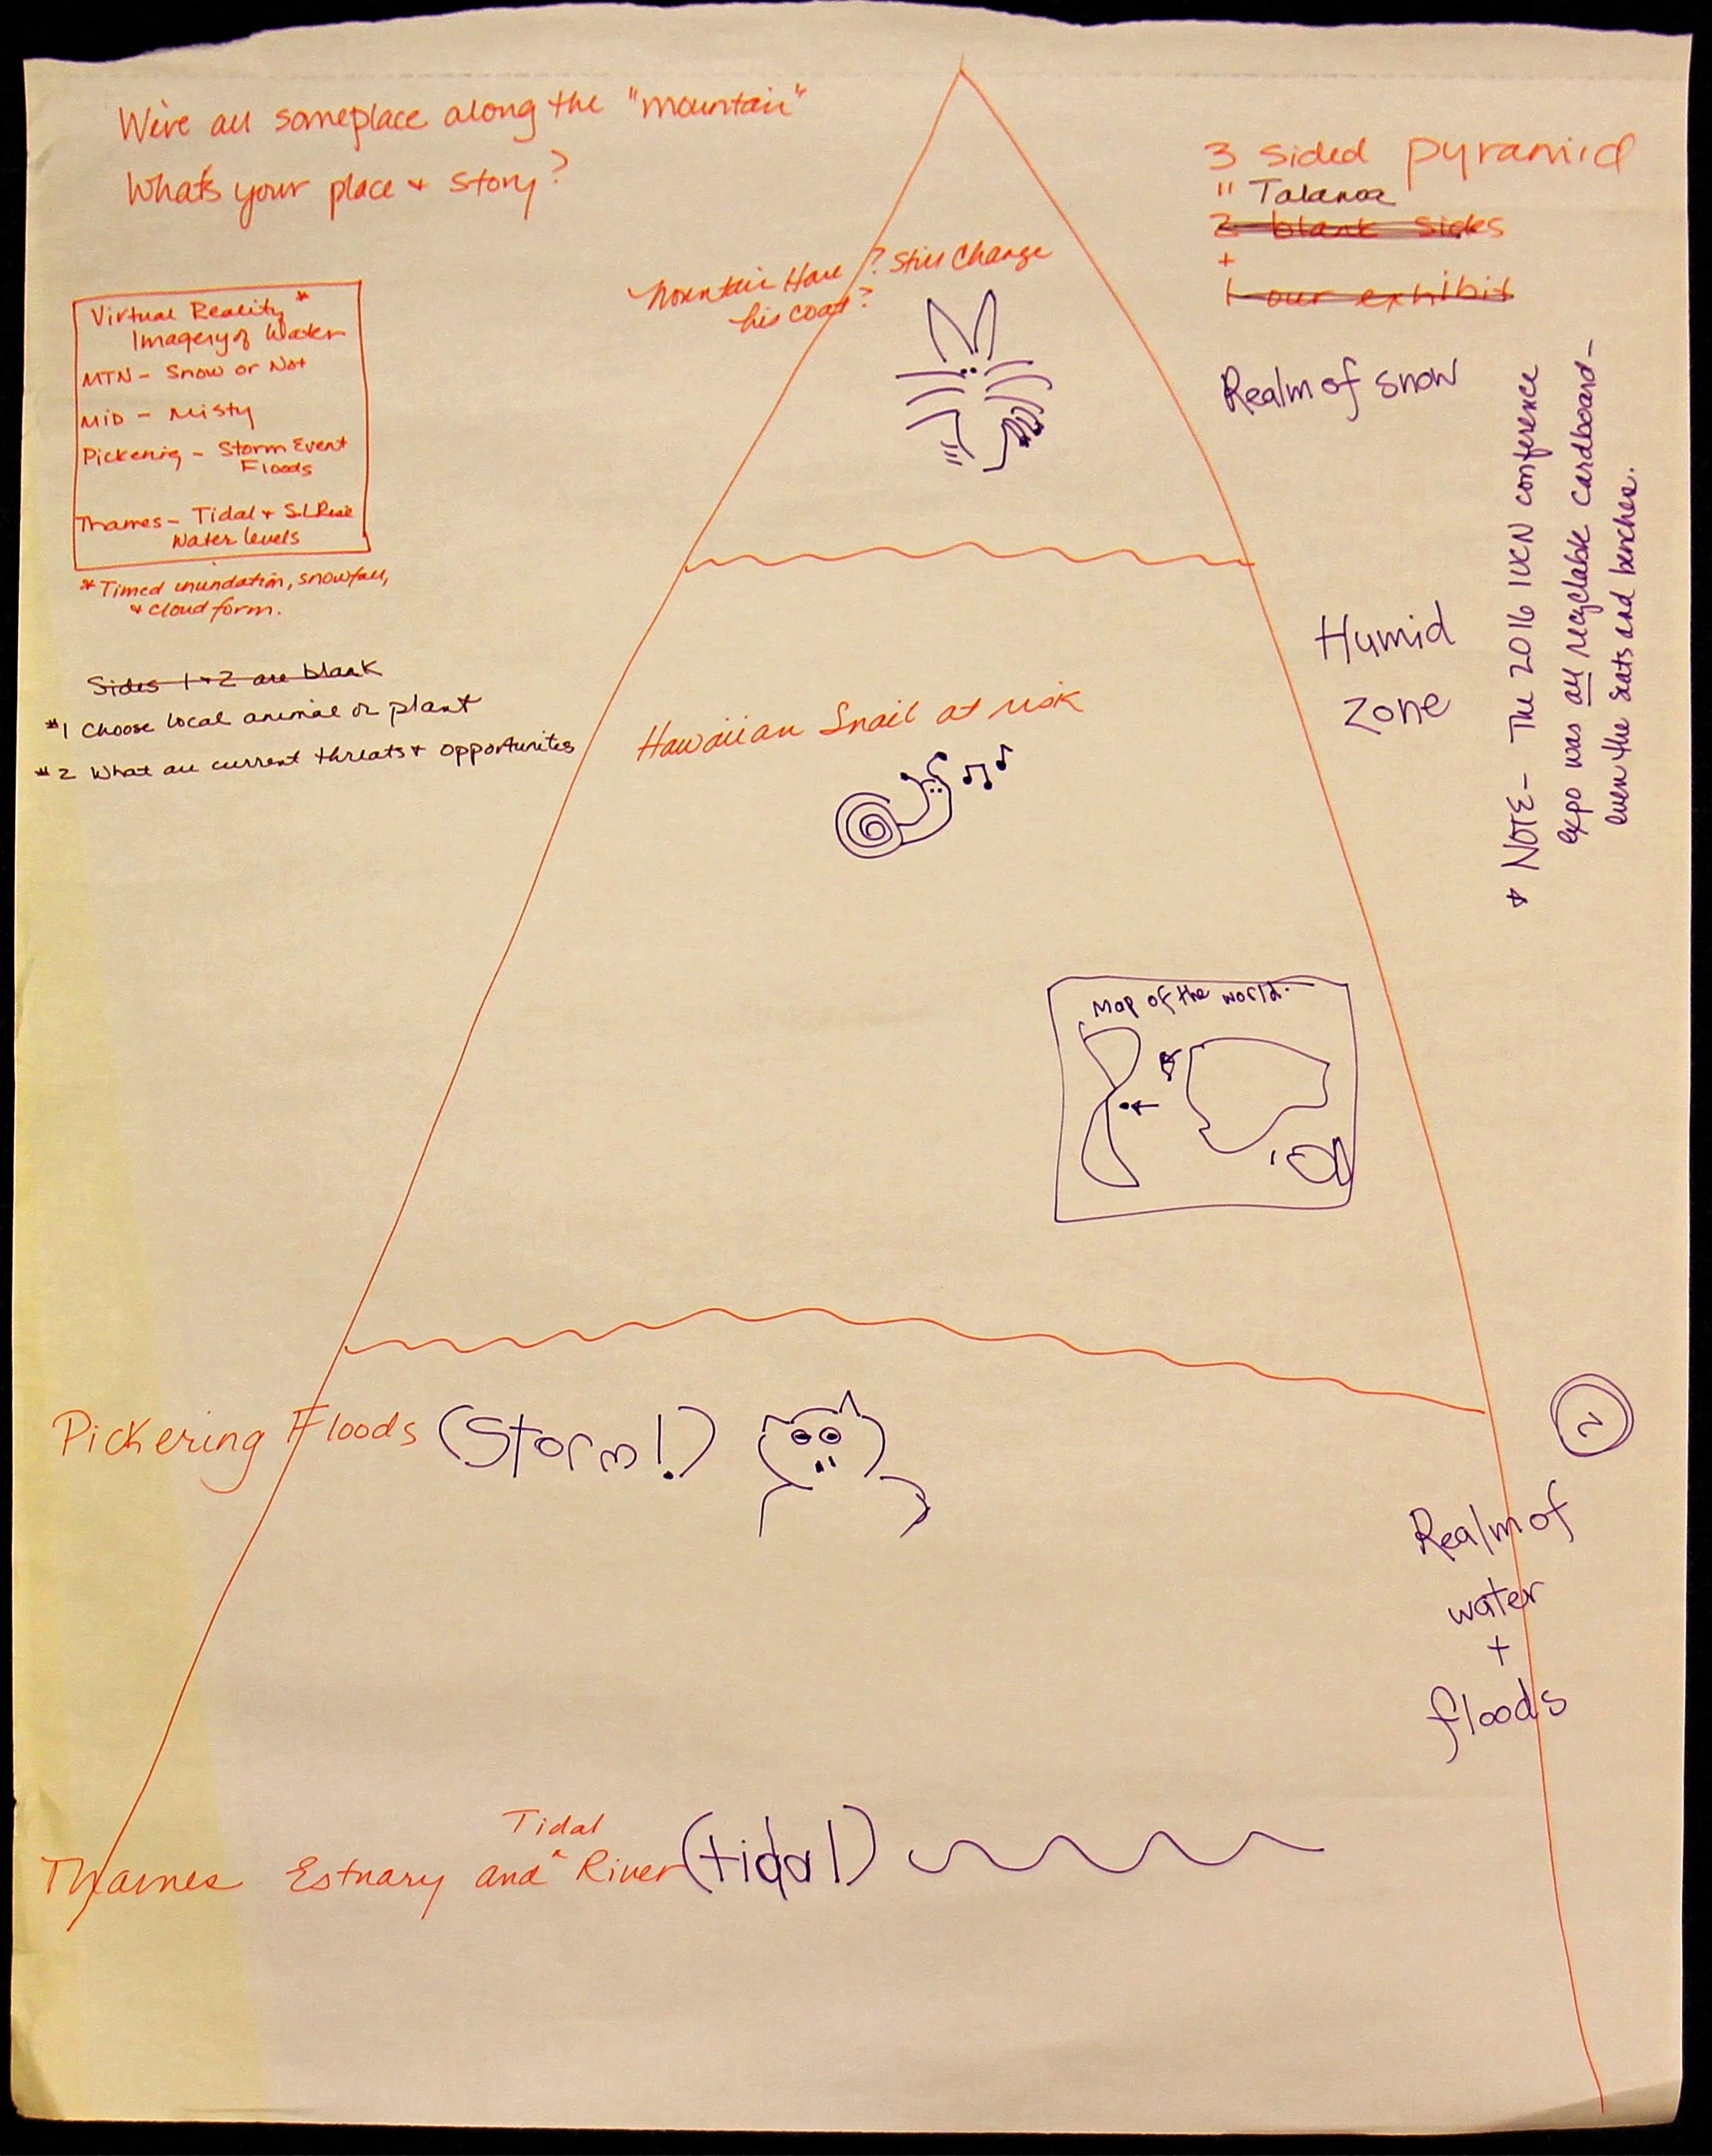 We're all someplace along the "mountain"
What's your place + story?
3 sided pyramid
" Talanoa
2 blank sides
+
1 our exhibit
Mountain Hare ? Still Change
his coat?
Virtual Reality *
Imagery of Water
MTN - Snow or Not
MID - Misty
Pickering - Storm Event
Floods
Thames - Tidal + S.L. Rise
Water levels
* Timed inundation, snowfall,
+ cloud form.
Realm of snow
* NOTE - The 2016 IUCN conference
expo was all recyclable cardboard -
even the seats and benches.
Sides 1 + 2 are blank
#1 Choose local animal or plant
#2 What are current threats + opportunities
Humid
Zone
Hawaiian Snail at risk
Map of the world.
Pickering Floods (Storm!)
2
Realm of
water
+
floods
Tidal
Thames Estuary and ^ River (tidal)